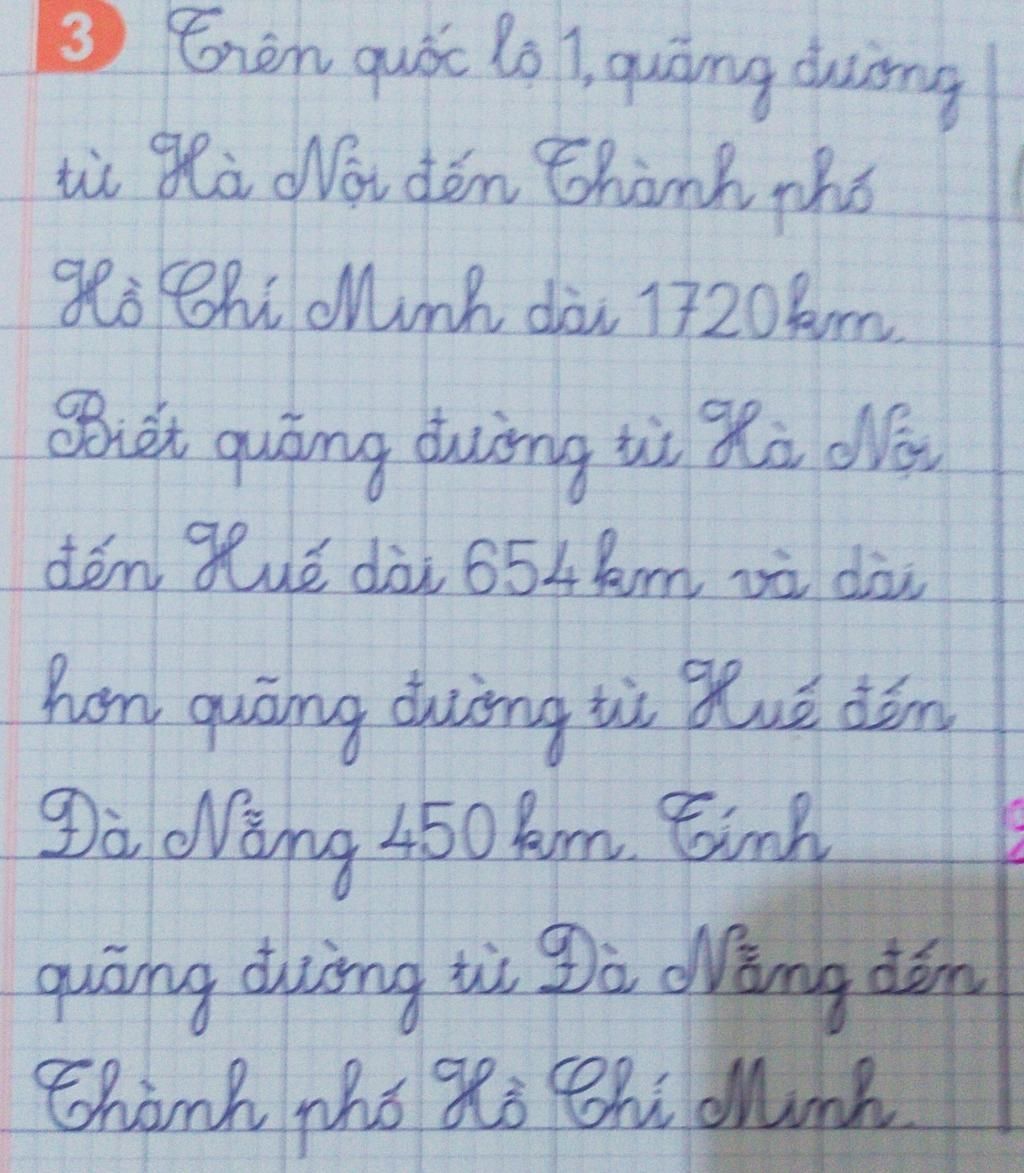 3 Trên quốc lộ 1, quãng đường
từ Hà Nội đến Thành phố
Hồ Chí Minh dài 1720 km.
Biết quãng đường từ Hà Nội
đến Huế dài 654 km và dài
hơn quãng đường từ Huế đến
Đà Nẵng 450 km. Tính
quãng đường từ Đà Nẵng đến
Thành phố Hồ Chí Minh.